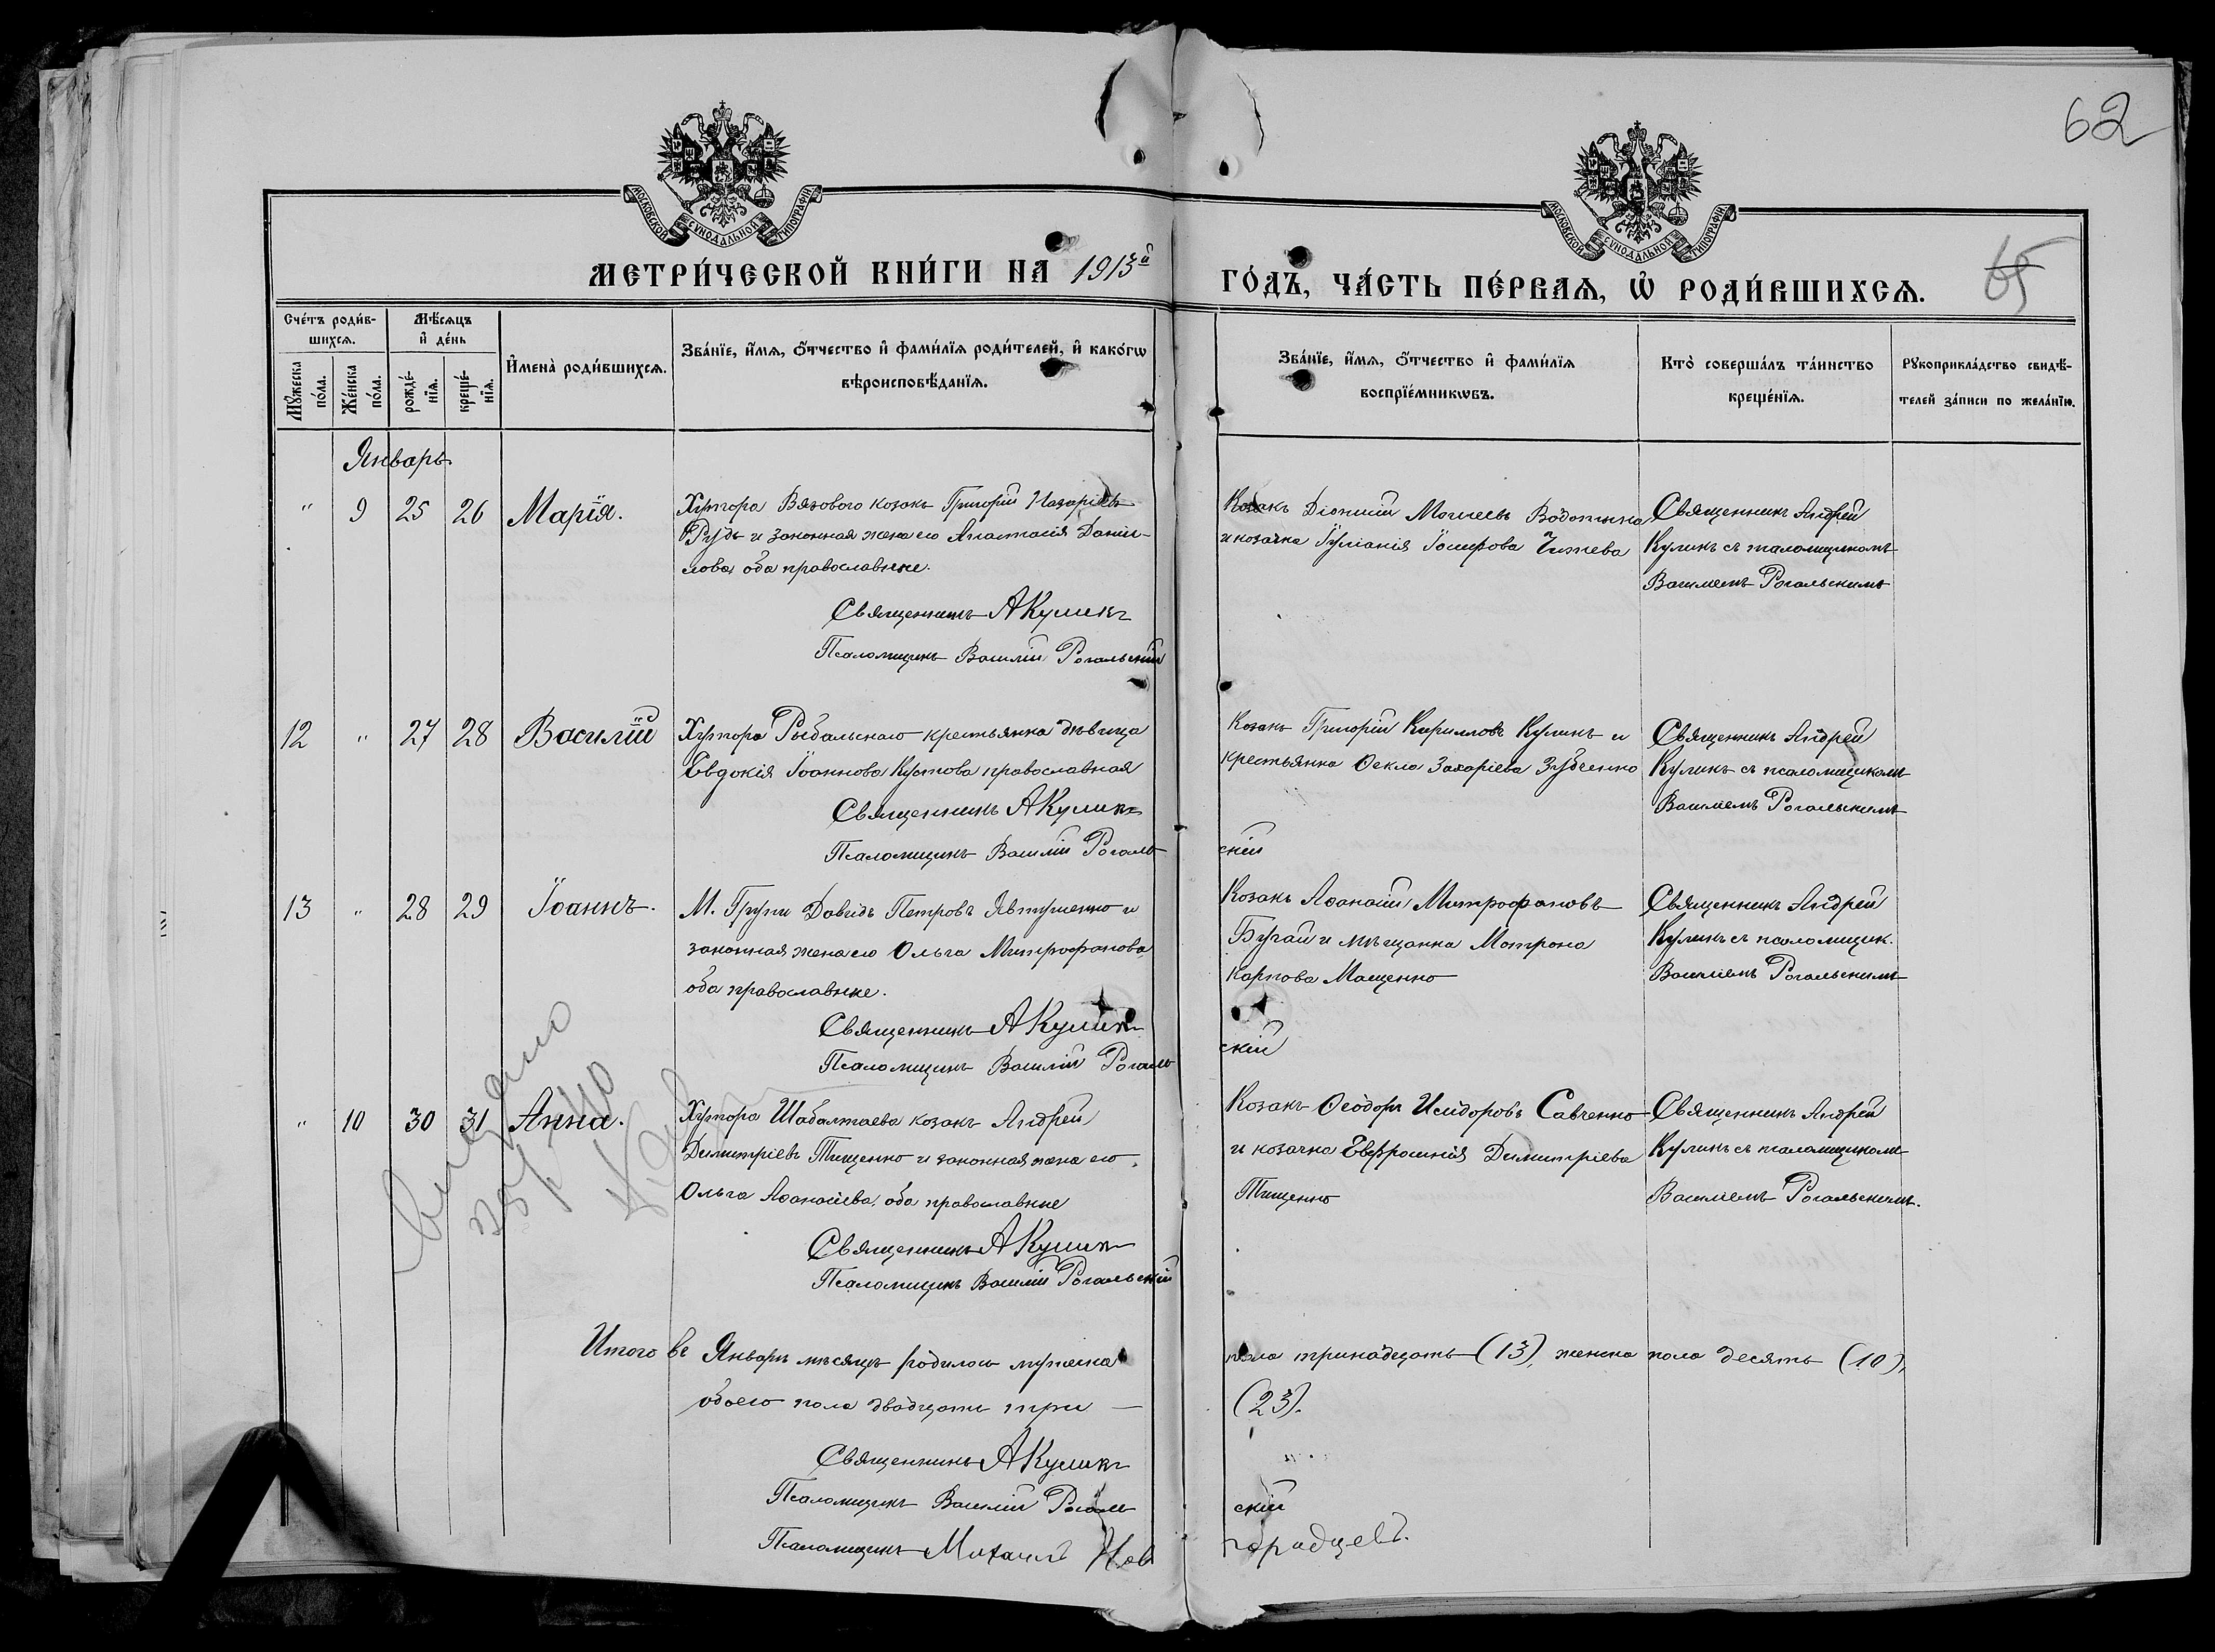 62
МОСКОВСКОЙ СѴНОДАЛЬНОЙ ТИПОГРАФІИ.
МОСКОВСКОЙ СѴНОДАЛЬНОЙ ТИПОГРАФІИ.
МЕТРИ́ЧЕСКОЙ КНИ́ГИ НА 1913й
ГО́ДЪ, ЧА́СТЬ ПЕ́РВАѦ, Ѡ҆ РОДИ́ВШИХСѦ.
65
Сче́тъ роди́в-
шихсѧ.
Мѣ́сѧцъ
и҆ де́нь
Мꙋ́жеска
по́ла.
Же́нска
по́ла.
рожде́-
нїѧ.
креще́-
нїѧ.
И҆мена̀ роди́вшихсѧ.
Зва́нїе, и҆́мѧ, ѻ҆́тчество и҆ фами́лїѧ роди́телей, и҆ како́гѡ
вѣроисповѣ́данїѧ.
Зва́нїе, и҆́мѧ, ѻ҆́тчество и҆ фами́лїѧ
воспрїе́мникѡвъ.
Кто̀ соверша́лъ та́инство
креще́нїѧ.
Рꙋкоприкла́дство свидѣ́-
телей за́писи по жела́нїю.
Январь.
" 9 25 26 Марія.
Хутора Вязового козакъ Григорій Назаріевъ
Рудь и законная жена его Анастасія Даніи-
лова, оба православные.
Священникъ АКуликъ
Псаломщикъ Василій Рогальскій
Козакъ Діонисій Моисеевъ
и козачка Іуліанія Іосифова
Священникъ Андрей
Куликъ съ псаломщикомъ
Василіемъ Рогальскимъ
12 " 27 28 Василій
Хутора Рыбальскаго крестьянка дѣвица
Евдокія Іоаннова Кустова православная
Священникъ АКуликъ
Псаломщикъ Василій Рогаль-
скій
Козакъ Григорій Кирилловъ Куликъ и
крестьянка Ѳекла Захаріева Зубченко
Священникъ Андрей
Куликъ съ псаломщикомъ
Василіемъ Рогальскимъ
13 " 28 29 Іоаннъ.
М. Груни Давидъ Петровъ Явтушенко и
законная жена его Ольга Митрофанова,
оба православные.
Священникъ АКуликъ
Псаломщикъ Василій Рогаль
скій
Козакъ Аѳанасій Митрофановъ
Бугай и мѣщанка Матрона
Карпова Мащенко
Священникъ Андрей
Куликъ съ псаломщик.
Василіемъ Рогальскимъ
" 10 30 31 Анна.
Хутора Шабалтаева козакъ Андрей
Димитріевъ Тищенко и законная жена его
Ольга Аѳанасіева, оба православные
Священникъ АКуликъ
Псаломщикъ Василій Рогальскій
Козакъ Ѳеодоръ Исидоровъ Савченко
и козачка Евфросинія Димитріева
Тищенко
Священникъ Андрей
Куликъ съ псаломщикомъ
Василіемъ Рогальскимъ.
Итого въ Январѣ мѣсяцѣ родилось мужеска
пола тринадцать (13), женска пола десять (10),
обоего пола двадцать три —
(23).
Священникъ АКуликъ
Псаломщикъ Василій Рогаль
скій
Псаломщикъ Михаилъ Нов
городцевъ.